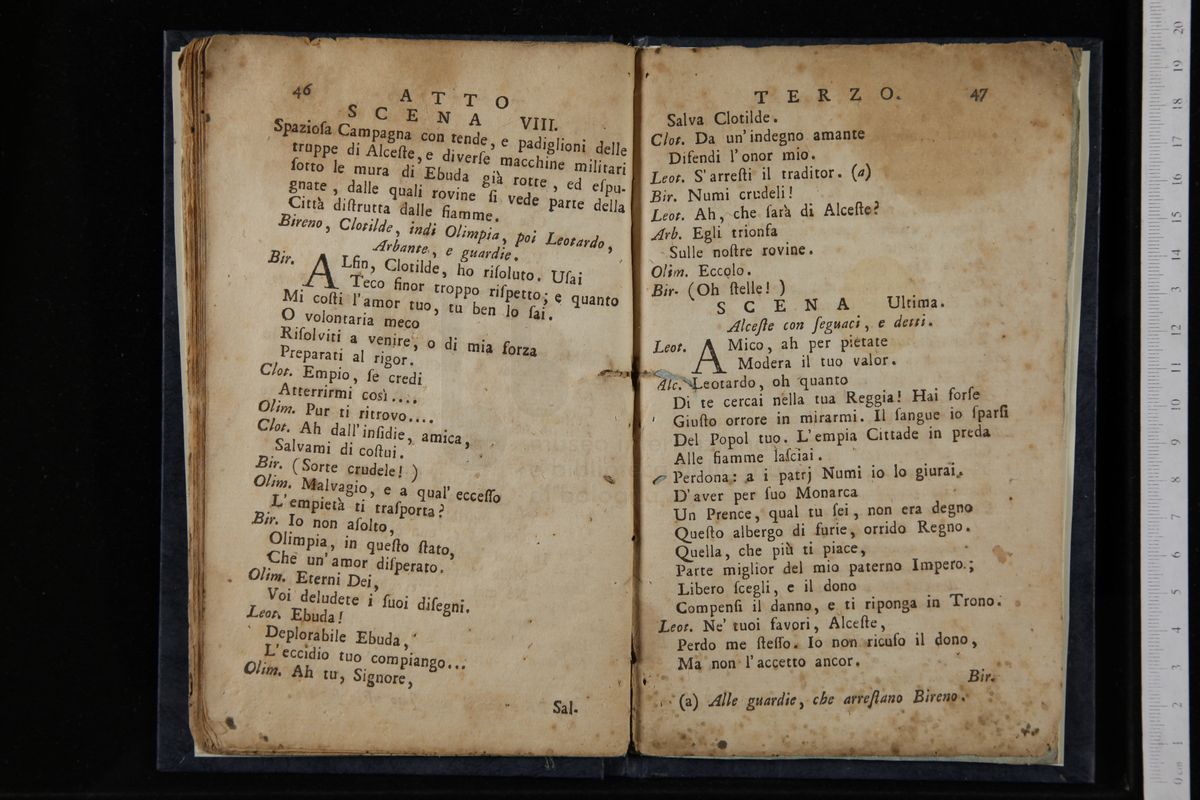 46
ATTO
SCENA VIII.
Spaziosa Campagna con tende, e padiglioni delle
truppe di Alceste, e diverse macchine militari
sotto le mura di Ebuda già rotte, ed espu-
gnate, dalle quali rovine si vede parte della
Città distrutta dalle fiamme.
Bireno, Clotilde, indi Olimpia, poi Leotardo,
Arbante, e guardie.
Bir. ALfin, Clotilde, ho risoluto. Usai
Teco finor troppo rispetto; e quanto
Mi costi l'amor tuo, tu ben lo sai.
O volontaria meco
Risolviti a venire, o di mia forza
Preparati al rigor.
Clot. Empio, se credi
Atterrirmi così....
Olim. Pur ti ritrovo....
Clot. Ah dall'insidie, amica,
Salvami di costui.
Bir. (Sorte crudele!)
Olim. Malvagio, e a qual' eccesso
L'empietà ti trasporta?
Bir. Io non asolto,
Olimpia, in questo stato,
Che un'amor disperato.
Olim. Eterni Dei,
Voi deludete i suoi disegni.
Leot. Ebuda!
Deplorabile Ebuda,
L'eccidio tuo compiango...
Olim. Ah tu, Signore,
Sal-
TERZO.
47
Salva Clotilde.
Clot. Da un'indegno amante
Difendi l'onor mio.
Leot. S'arresti il traditor. (a)
Bir. Numi crudeli!
Leot. Ah, che sarà di Alceste?
Arb. Egli trionfa
Sulle nostre rovine.
Olim. Eccolo.
Bir. (Oh stelle!)
SCENA Ultima.
Alceste con seguaci, e detti.
Leot. AMico, ah per pietate
Modera il tuo valor.
Alc. Leotardo, oh quanto
Di te cercai nella tua Reggia! Hai forse
Giusto orrore in mirarmi. Il sangue io sparsi
Del Popol tuo. L'empia Cittade in preda
Alle fiamme lasciai.
Perdona: a i patrj Numi io lo giurai,
D'aver per suo Monarca
Un Prence, qual tu sei, non era degno
Questo albergo di furie, orrido Regno.
Quella, che più ti piace,
Parte miglior del mio paterno Impero;
Libero scegli, e il dono
Compensi il danno, e ti riponga in Trono.
Leot. Ne' tuoi favori, Alceste,
Perdo me stesso. Io non ricuso il dono,
Ma non l'accetto ancor.
Bir.
(a) Alle guardie, che arrestano Bireno.